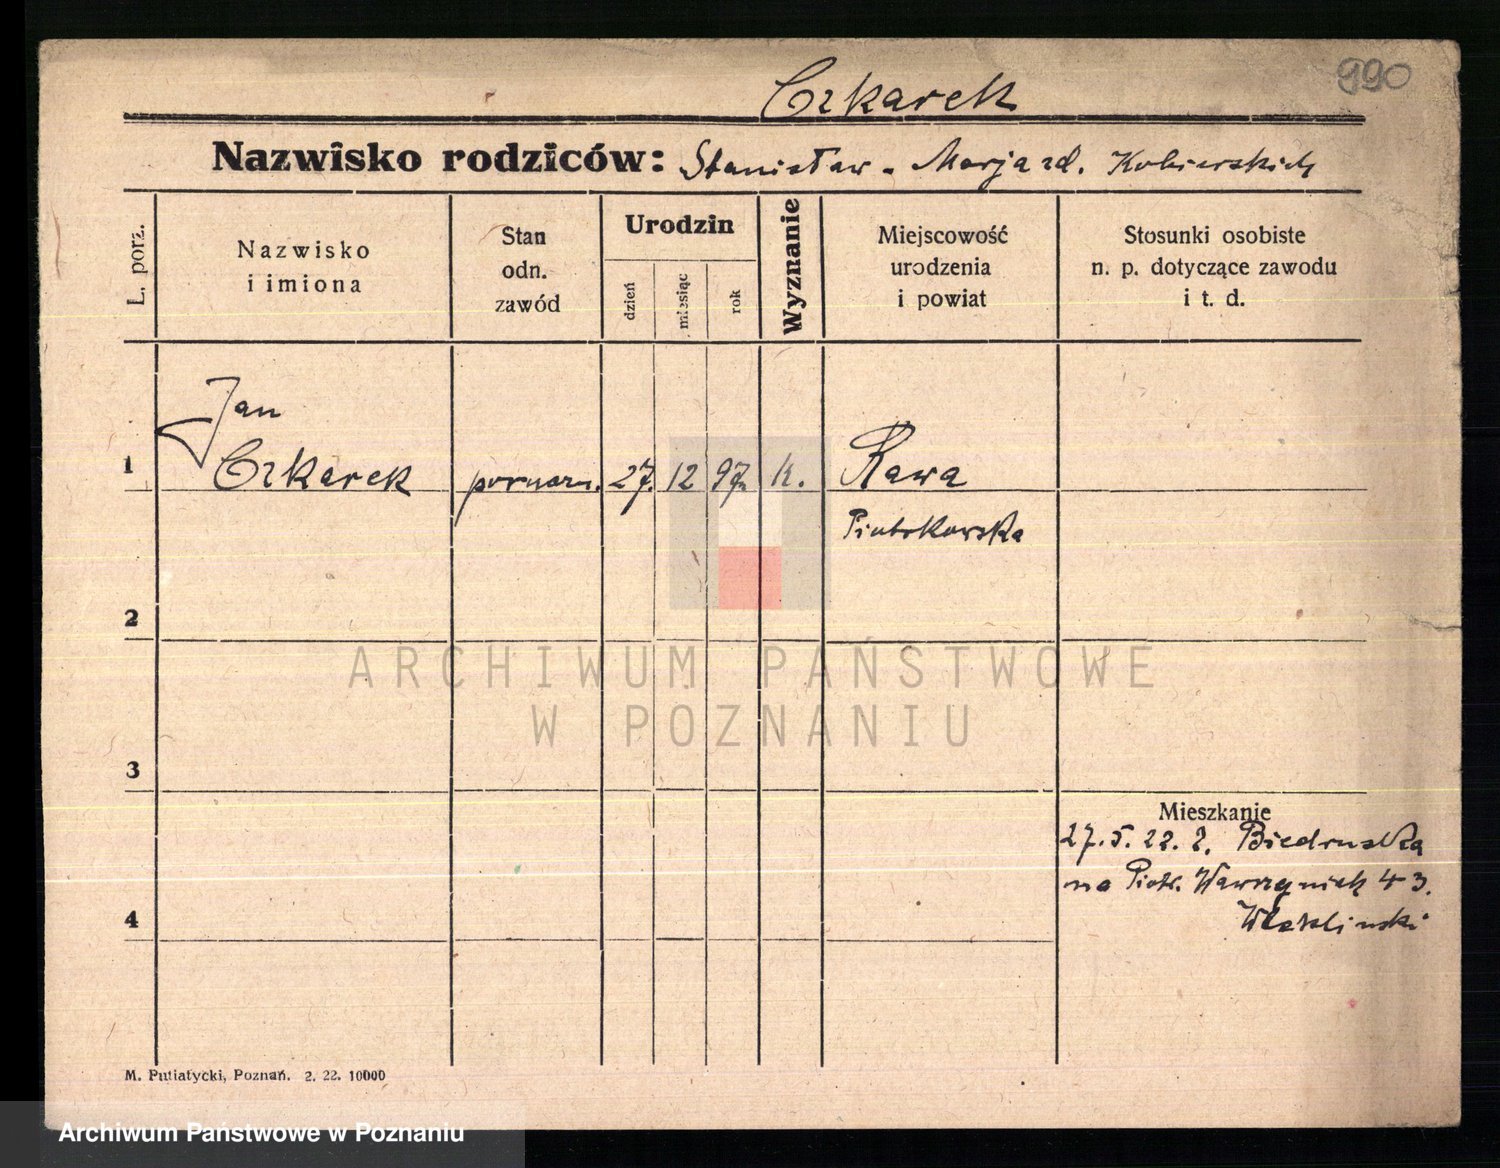 990
Czkarek
Nazwisko rodziców: Stanisław - Marja zd. Kobierskich
L. porz.
Nazwisko
i imiona
Stan
odn.
zawód
Urodzin
dzień
miesiąc
rok
Wyznanie
Miejscowość
urodzenia
i powiat
Stosunki osobiste
n. p. dotyczące zawodu
i t. d.
Jan
1 Czkarek 27. 12 97. k. Rawa
Piotrkowska
2
ARCHIWUM PAŃSTWOWE
W POZNANIU
3
Mieszkanie
27.5.22. z. Biedruska
na Piotr. Wawrzyniak 43.
4
M. Putiatycki, Poznań. 2. 22. 10000
Archiwum Państwowe w Poznaniu